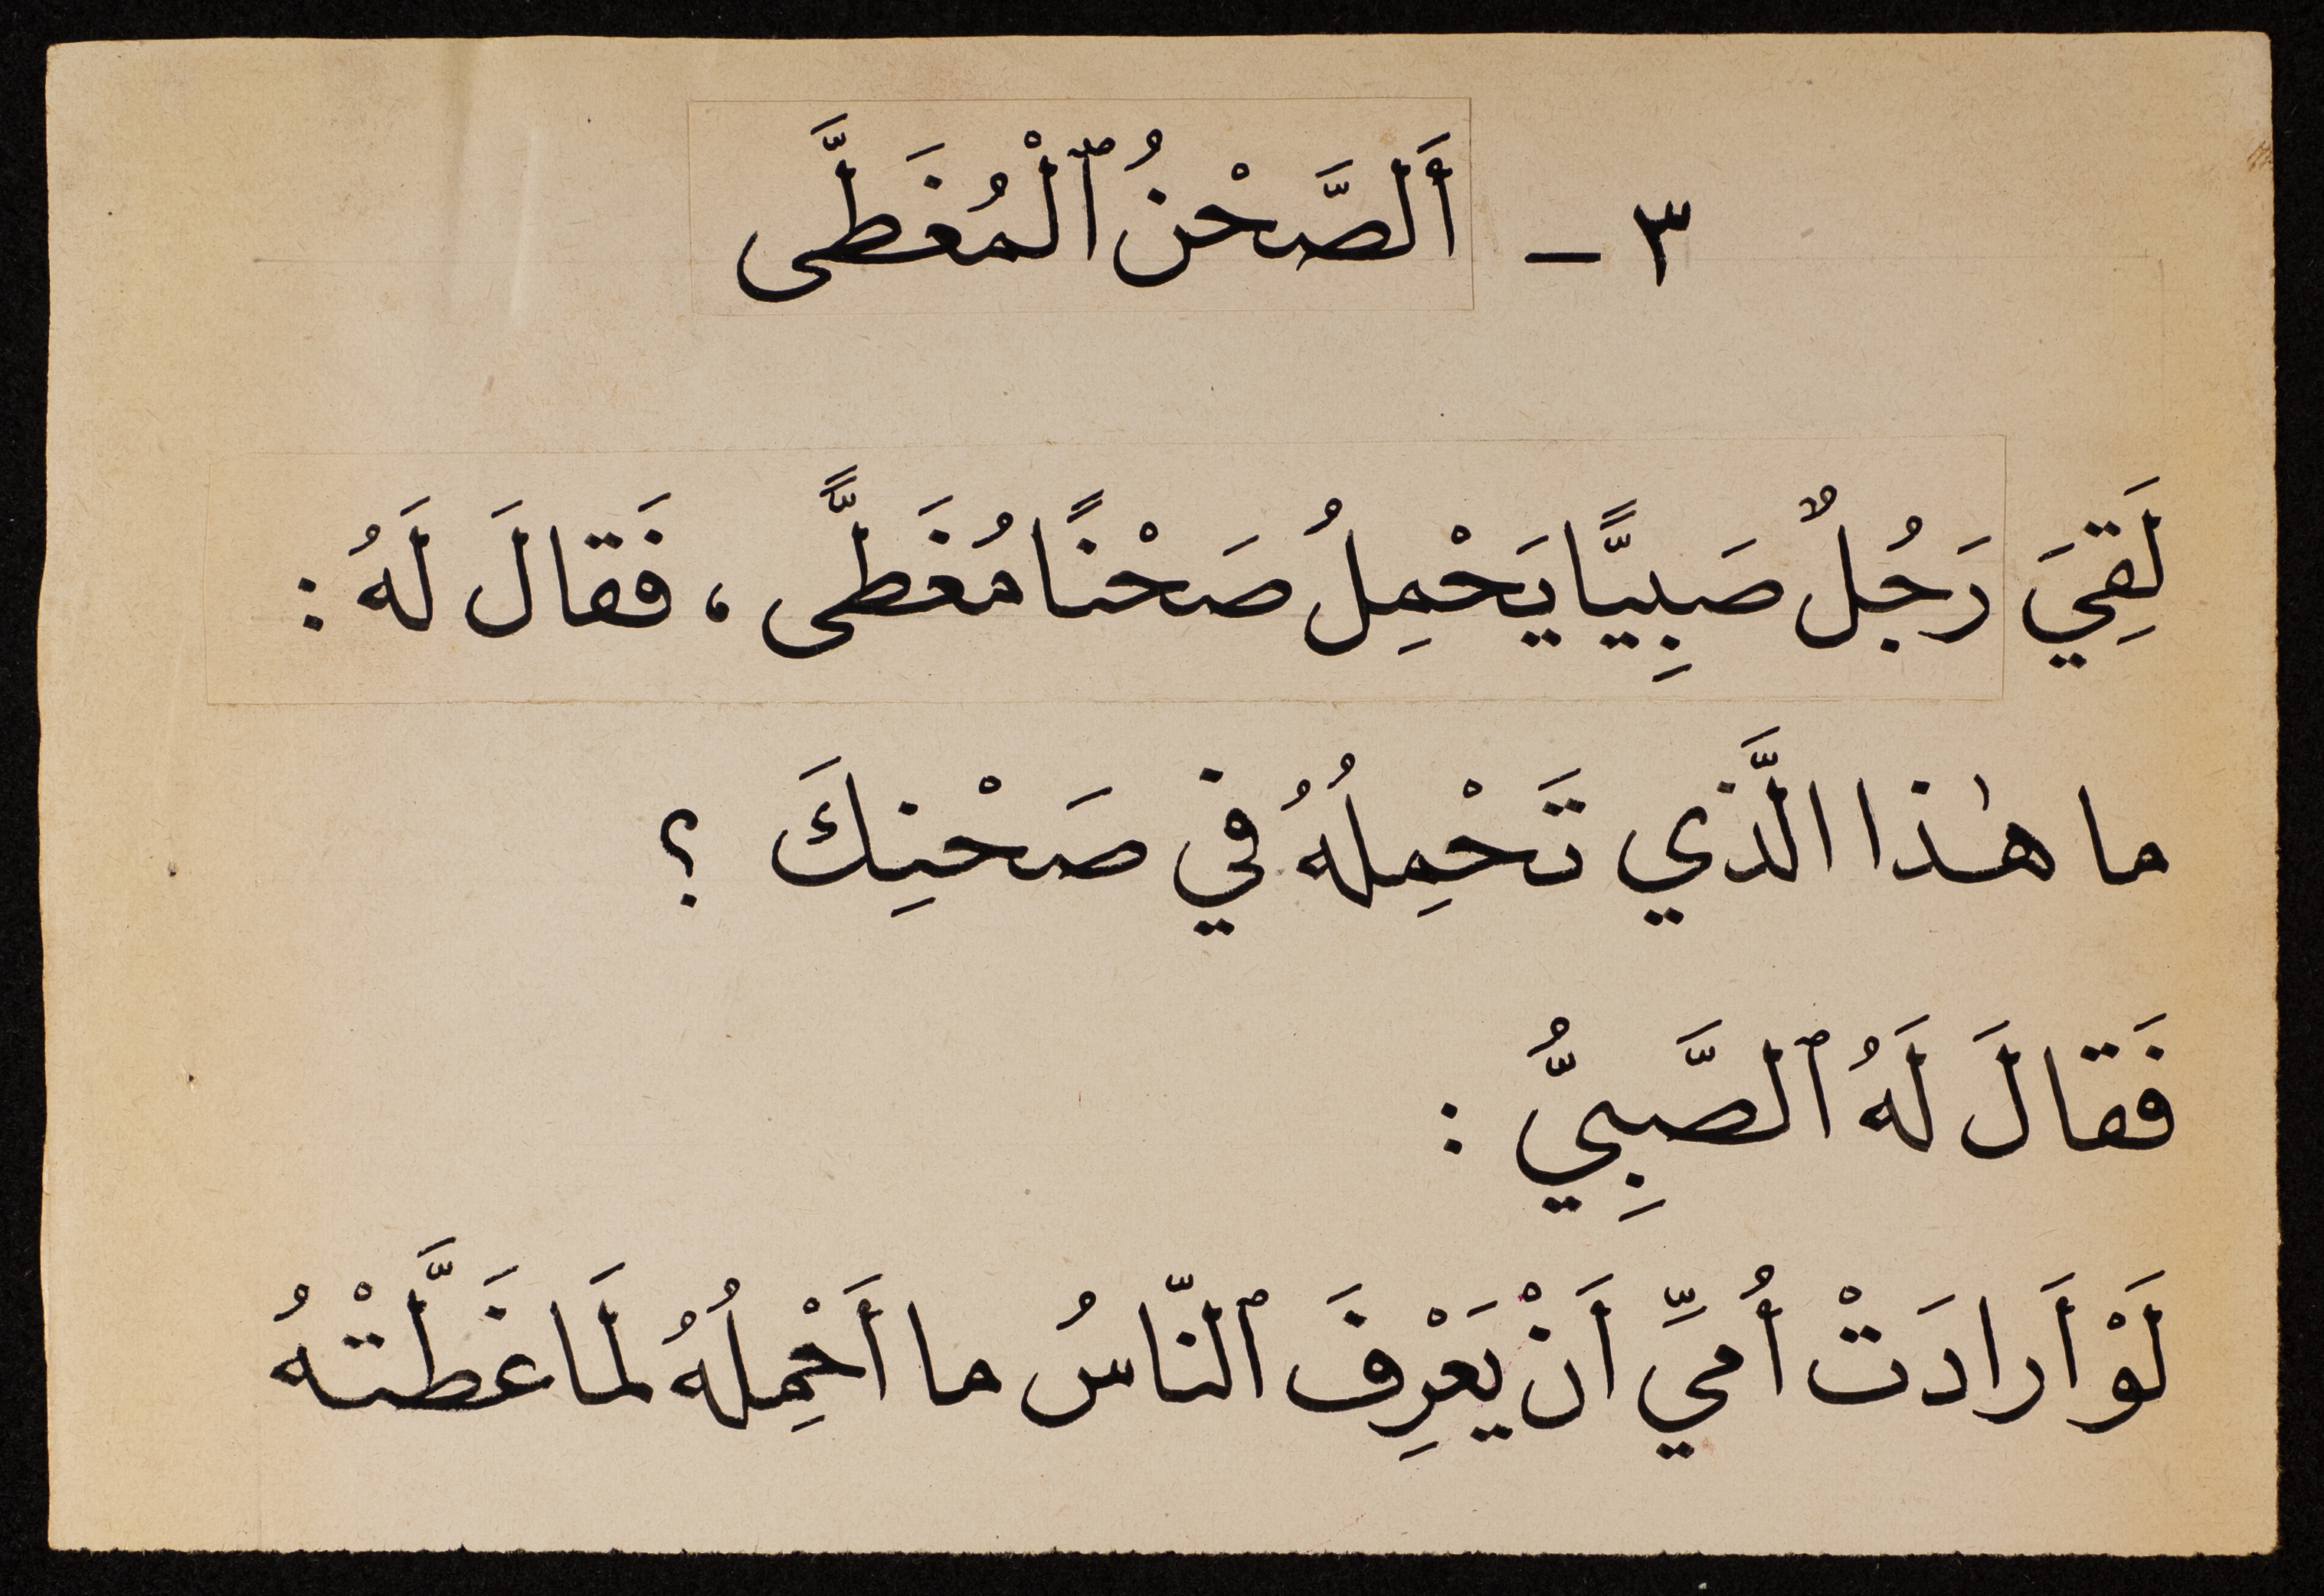 ٣ - أَلصَّحْنُ ٱلْمُغَطَّى
لَقِيَ رَجُلٌ صَبِيًّا يَحْمِلُ صَحْنًا مُغَطًّى ، فَقالَ لَهُ :
ما هٰذا الَّذي تَحْمِلُهُ في صَحْنِكَ ؟
فَقالَ لَهُ ٱلصَّبِيُّ :
لَوْ أَرادَتْ أُمّي أَنْ يَعْرِفَ ٱلنّاسُ ما أَحْمِلُهُ لَمَا غَطَّتْهُ